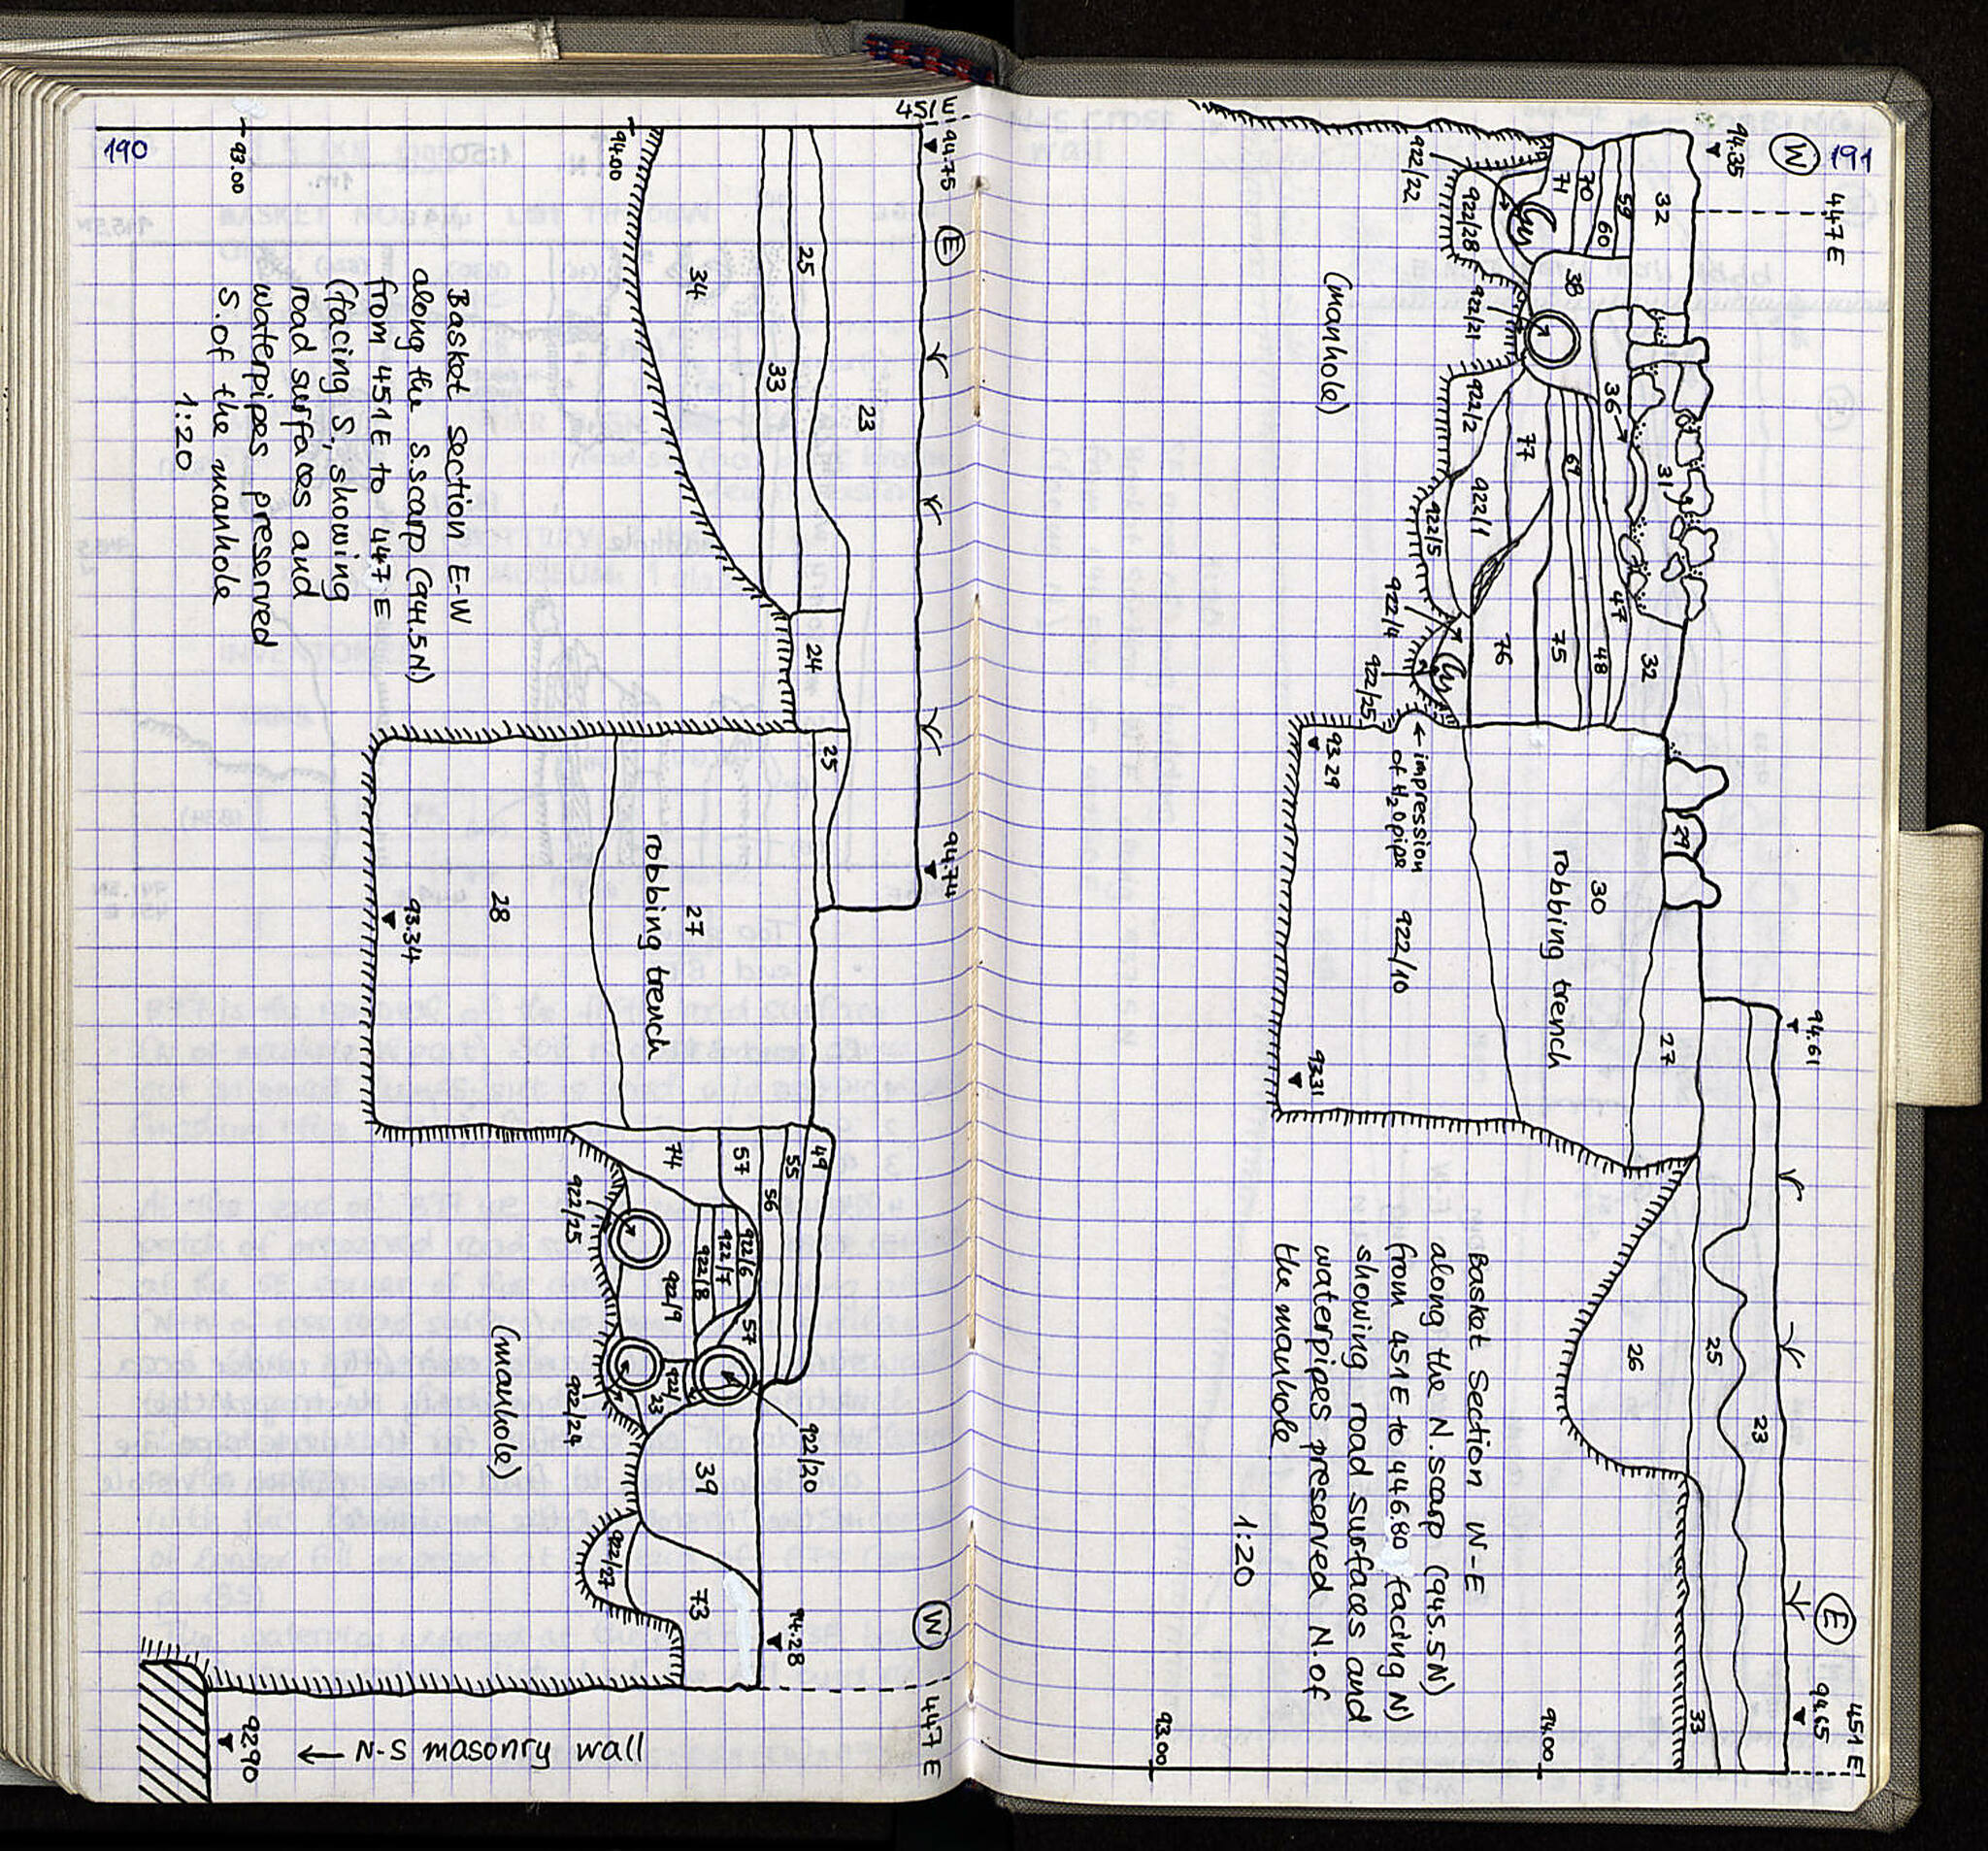 190
451E
94.75
E
94.00
93.00
25
34
33
23
24
25
94.74
Basket section E-W
along the S.scarp (944.5N)
from 451E to 447E
(facing S) showing
road surfaces and
waterpipes preserved
S. of the manhole
1:20
27
robbing trench
28
93.34
49
55
56
57
74
922/6
922/7
922/8
922/9
57
922/25
922/24
922/20
33
(manhole)
39
922/27
73
94.28
W
447E
92.90
← N-S masonry wall
191
W
94.35
447E
32
59
60
70
71
922/22
922/28
38
922/21
922/2
(manhole)
36
31
77
69
47
922/1
922/5
922/4
922/25
76
75
48
32
← impression
of H₂O pipe
93.29
29
30
robbing trench
922/10
27
93.31
94.61
Basket Section W-E
along the N.scarp (945.5N)
from 451E to 446.80 facing N)
showing road surfaces and
waterpipes preserved N. of
the manhole
1:20
26
25
23
E
33
94.65
451E
94.00
93.00